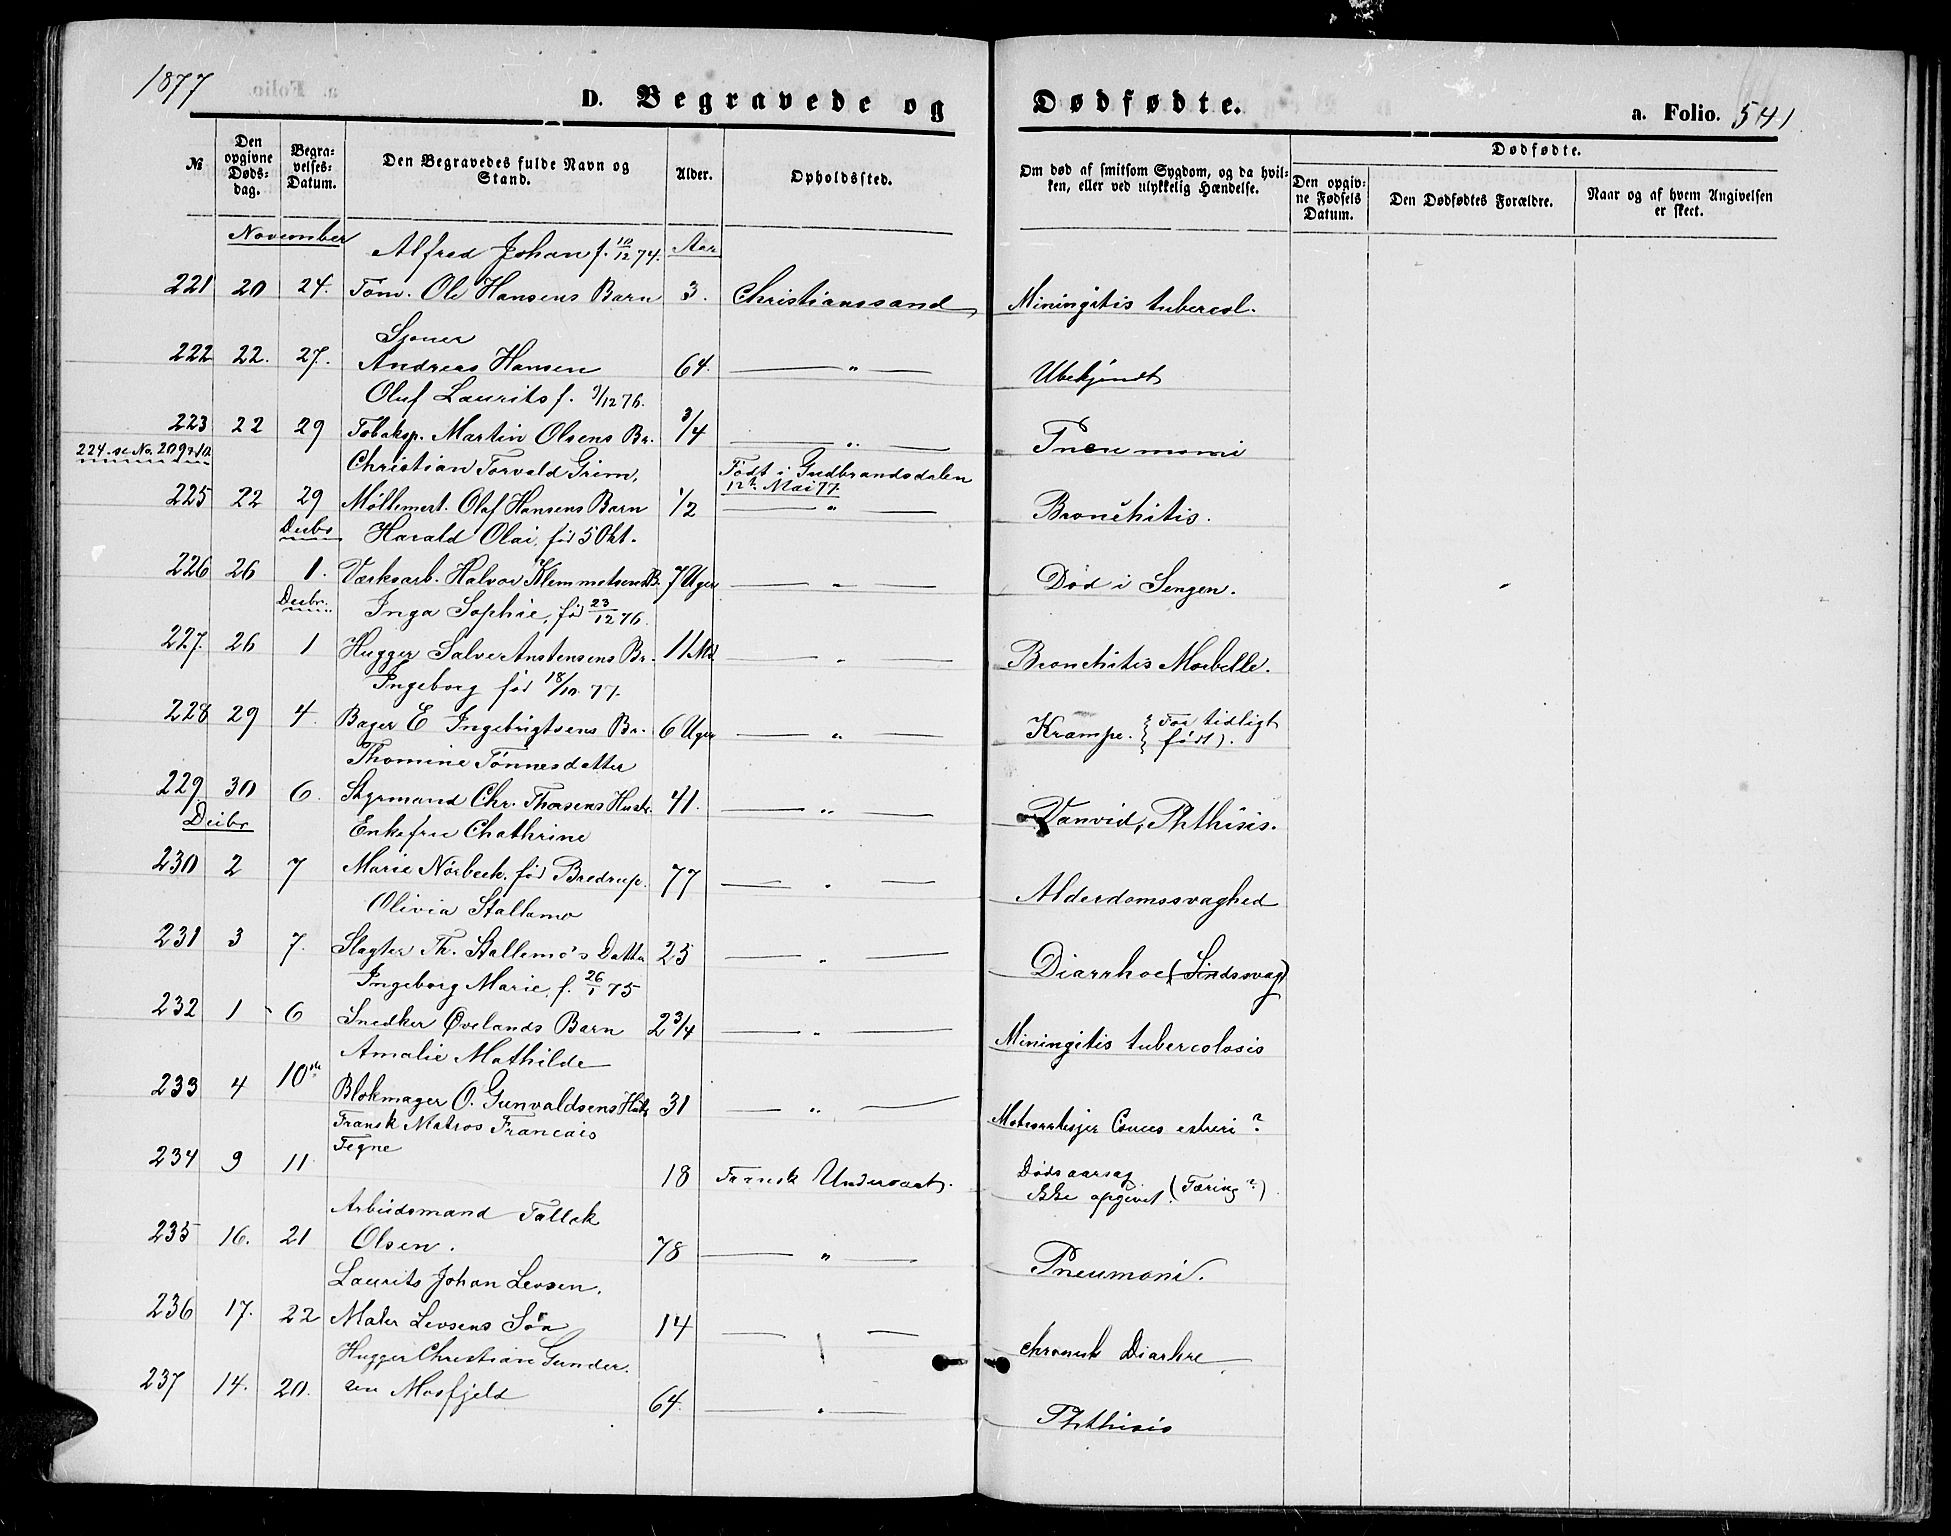 1877
D. Begravede og Dødfødte.
a. Folio. 541.
№
Den opgivne Døds-dag.
Begra-velses-Datum.
Den Begravedes fulde Navn og Stand.
Alder.
Opholdssted.
Om død af smitsom Sygdom, og da hvil-ken, eller ved ulykkelig Hændelse.
Dødfødte.
Den opgiv-ne Fødsels Datum.
Den Dødfødtes Forældre.
Naar og af hvem Angivelsen er skeet.
November
Alfred Johan f. 10/12 74. Aar
221 20 24. Tøm. Ole Hansens Barn 3. Christianssand Miningitis tubercol.
Sjouer
222 22. 27. Andreas Hansen 64. " Ubekjendt
Oluf Laurits f. 9/12 76.
223 22 29 Tobaksp. Martin Olsens Br. 3/4 " Pneumoni
224. se No. 209 &10
Christian Torvald Grim, Født i Gudbrandsdalen
12te Mai 77
225 22 29 Møllemest. Olaf Hansens Barn 1/2 " Bronchitis.
Decbr Harald Olai, fød 5 Okt.
226 26 1. Værksarb. Halvor Klemmetsens B. 7 Uger " Død i Sengen.
Decbr. Inga Sophie, fød 23/12 76.
227. 26 1 Hugger Salve Anstensens Br. 11 Md. " Bronchitis Morbelle.
Ingeborg fød 18/10 77.
228 29 4. Bager E Ingebrigtsens Br. 6 Uger " Krampe. (For tidligt
født).
Thomine Tønnesdatter
229 30 6. Styrmand Chr. Thorsens Hustr. 41. " Vanvid, Phthisis.
Decbr
Enkefru Chathrine
230 2 7 Marie Nörbeck, fød Bredrup. 77 " Alderdomssvaghed
Olivia Stallemo
231 3 7. Slagter Th. Stallemo's Datter 25 " Diarrhoe (Sindssvag)
Ingeborg Marie, f. 26/1 75
232 1 6 Snedker Øvelands Barn 2 3/4 " Miningitis tubercolosis
Amalie Mathilde
233 4 10de Blokmager O. Gunvaldsens Hustr 31 " ?
Fransk Matros Francais
Tegne
234 9 11 18 Fransk Undersaat. Dødsaarsag
Ikke opgivet (Tæring?).
Arbeidsmand Tallak
235 16. 21 Olsen. 78 " Pneumoni.
Laurits Johan Levsen.
236 17. 22 Maler Levsens Søn 14 chronisk Diarhre
Hugger Christian Gunder.
237 14. 20. sen Mosfjeld 64. " Phthisis